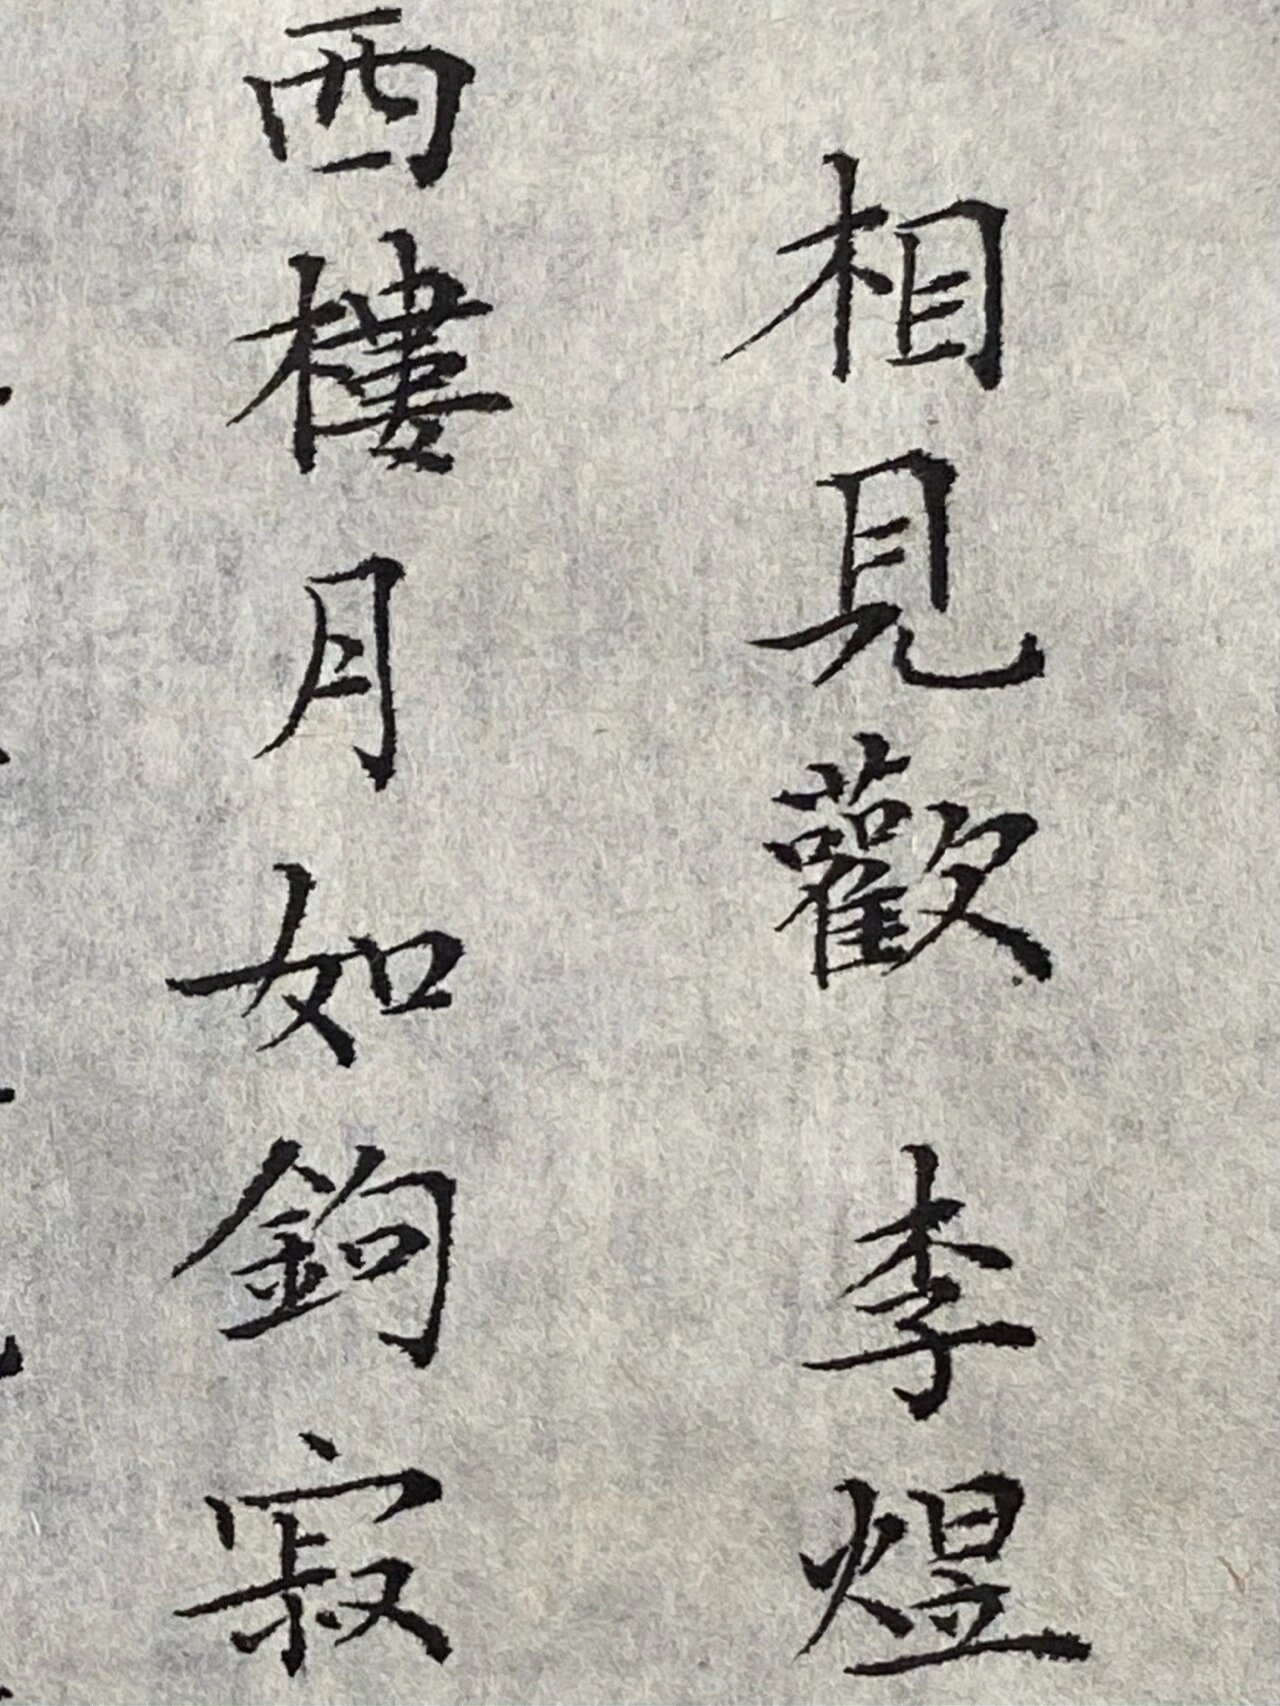 相見歡 李煜
西樓月如鉤寂